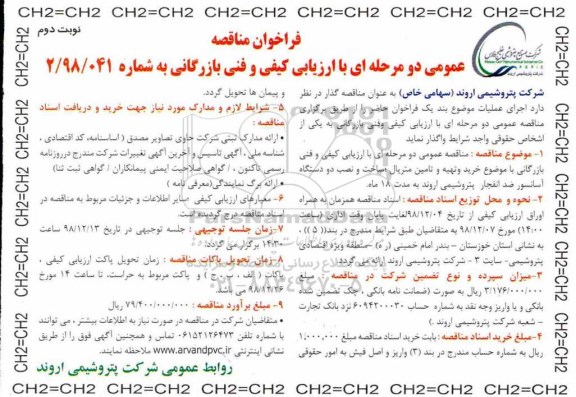 CH2=CH2 CH2=CH2 CH2=CH2 CH2=CH2 CH2=CH2 CH2=CH2
نوبت دوم
فراخوان مناقصه
عمومی دو مرحله ای با ارزیابی کیفی و فنی بازرگانی به شماره ۲/۹۸/۰۴۱
شرکت پتروشیمی اروند (سهامی خاص) به عنوان مناقصه گذار در نظر
دارد اجرای عملیات موضوع بند یک فراخوان حاضر را از طریق برگزاری
مناقصه عمومی دو مرحله ای با ارزیابی کیفی وفنی بازرگانی به یکی از
اشخاص حقوقی واجد شرایط واگذار نماید
۱- موضوع مناقصه : مناقصه عمومی دو مرحله ای با ارزیابی کیفی و فنی
بازرگانی با موضوع خرید وتهیه و تامین متریال وساخت و نصب دو دستگاه
آسانسور ضد انفجار پتروشیمی اروند به مدت ۱۸ ماه.
۲- نحوه و محل توزیع اسناد مناقصه : اسناد مناقصه همزمان به همراه
اوراق ارزیابی کیفی از تاریخ ۹۸/۱۲/۰۴ لغایت پایان وقت اداری (ساعت
۱۴:۰۰) مورخ ۹۸/۱۲/۰۷ به متقاضیان طبق شرایط مندرج در بند(( ۵ )) ،
به نشانی استان خوزستان – بندر امام خمینی ( ره ) –منطقه ویژه اقتصادی
پتروشیمی– سایت ۳ – شرکت پتروشیمی اروند ارائه می گردد.
۳-میزان سپرده و نوع تضمین شرکت در مناقصه : مبلغ
۳/۱۷۶/۰۰۰/۰۰۰ ریال به صورت (ضمانت نامه بانکی ، چک تضمین شده
بانکی و یا واریز وجه نقد به شماره حساب ۶۰۹۴۲۰۰۳۰ نزد بانک تجارت
– شعبه شرکت پتروشیمی اروند .)
۴-مبلغ خرید اسناد مناقصه : بابت خرید اسناد مناقصه مبلغ ۱/۰۰۰/۰۰۰
ریال به شماره حساب مندرج در بند (۳) واریز و اصل فیش به امور حقوقی
و پیمان ها تحویل گردد.
۵- شرایط لازم و مدارک مورد نیاز جهت خرید و دریافت اسناد
مناقصه :
• ارائه مدارک ثبتی شرکت حاوی تصاویر مصدق ( اساسنامه، کد اقتصادی ،
شناسه ملی ، آگهی تاسیس و آخرین آگهی تغییرات شرکت مندرج درروزنامه
رسمی تاکنون ، / گواهی صلاحیت ایمنی پیمانکاران / گواهی ثبت ثنا)
• ارائه برگ نمایندگی(معرفی نامه )
۶- معیارهای ارزیابی کیفی ، سایر اطلاعات و جزئیات مربوط به مناقصه در
اسناد مناقصه درج گردیده است.
۷-زمان جلسه توجیهی : جلسه توجیهی در تاریخ ۹۸/۱۲/۱۳ ساعت
۱۴:۳۰ برگزار می گردد.
۸-زمان تحویل پاکات مناقصه : زمان تحویل پاکت ارزیابی کیفی ،
پاکات ( الف ، ب ، ج ) و پاکت مربوط به حراست، تا ساعت ۱۴ مورخ
۹۸/۱۲/۲۶ می باشد
۹-مبلغ برآورد مناقصه : ۷۹/۴۰۰/۰۰۰/۰۰۰ ریال
• متقاضیان شرکت در مناقصه در صورت نیاز به اطلاعات بیشتر ، می توانند
با شماره تلفن ۰۶۱۵۲۱۲۶۴۷۳ تماس و همچنین آگهی فوق را از طریق
نشانی اینترنتی www.arvandpvc.ir ملاحظه نمایند.
روابط عمومی شرکت پتروشیمی اروند
CH2=CH2 CH2=CH2 CH2=CH2 CH2=CH2 CH2=CH2 CH2=CH2